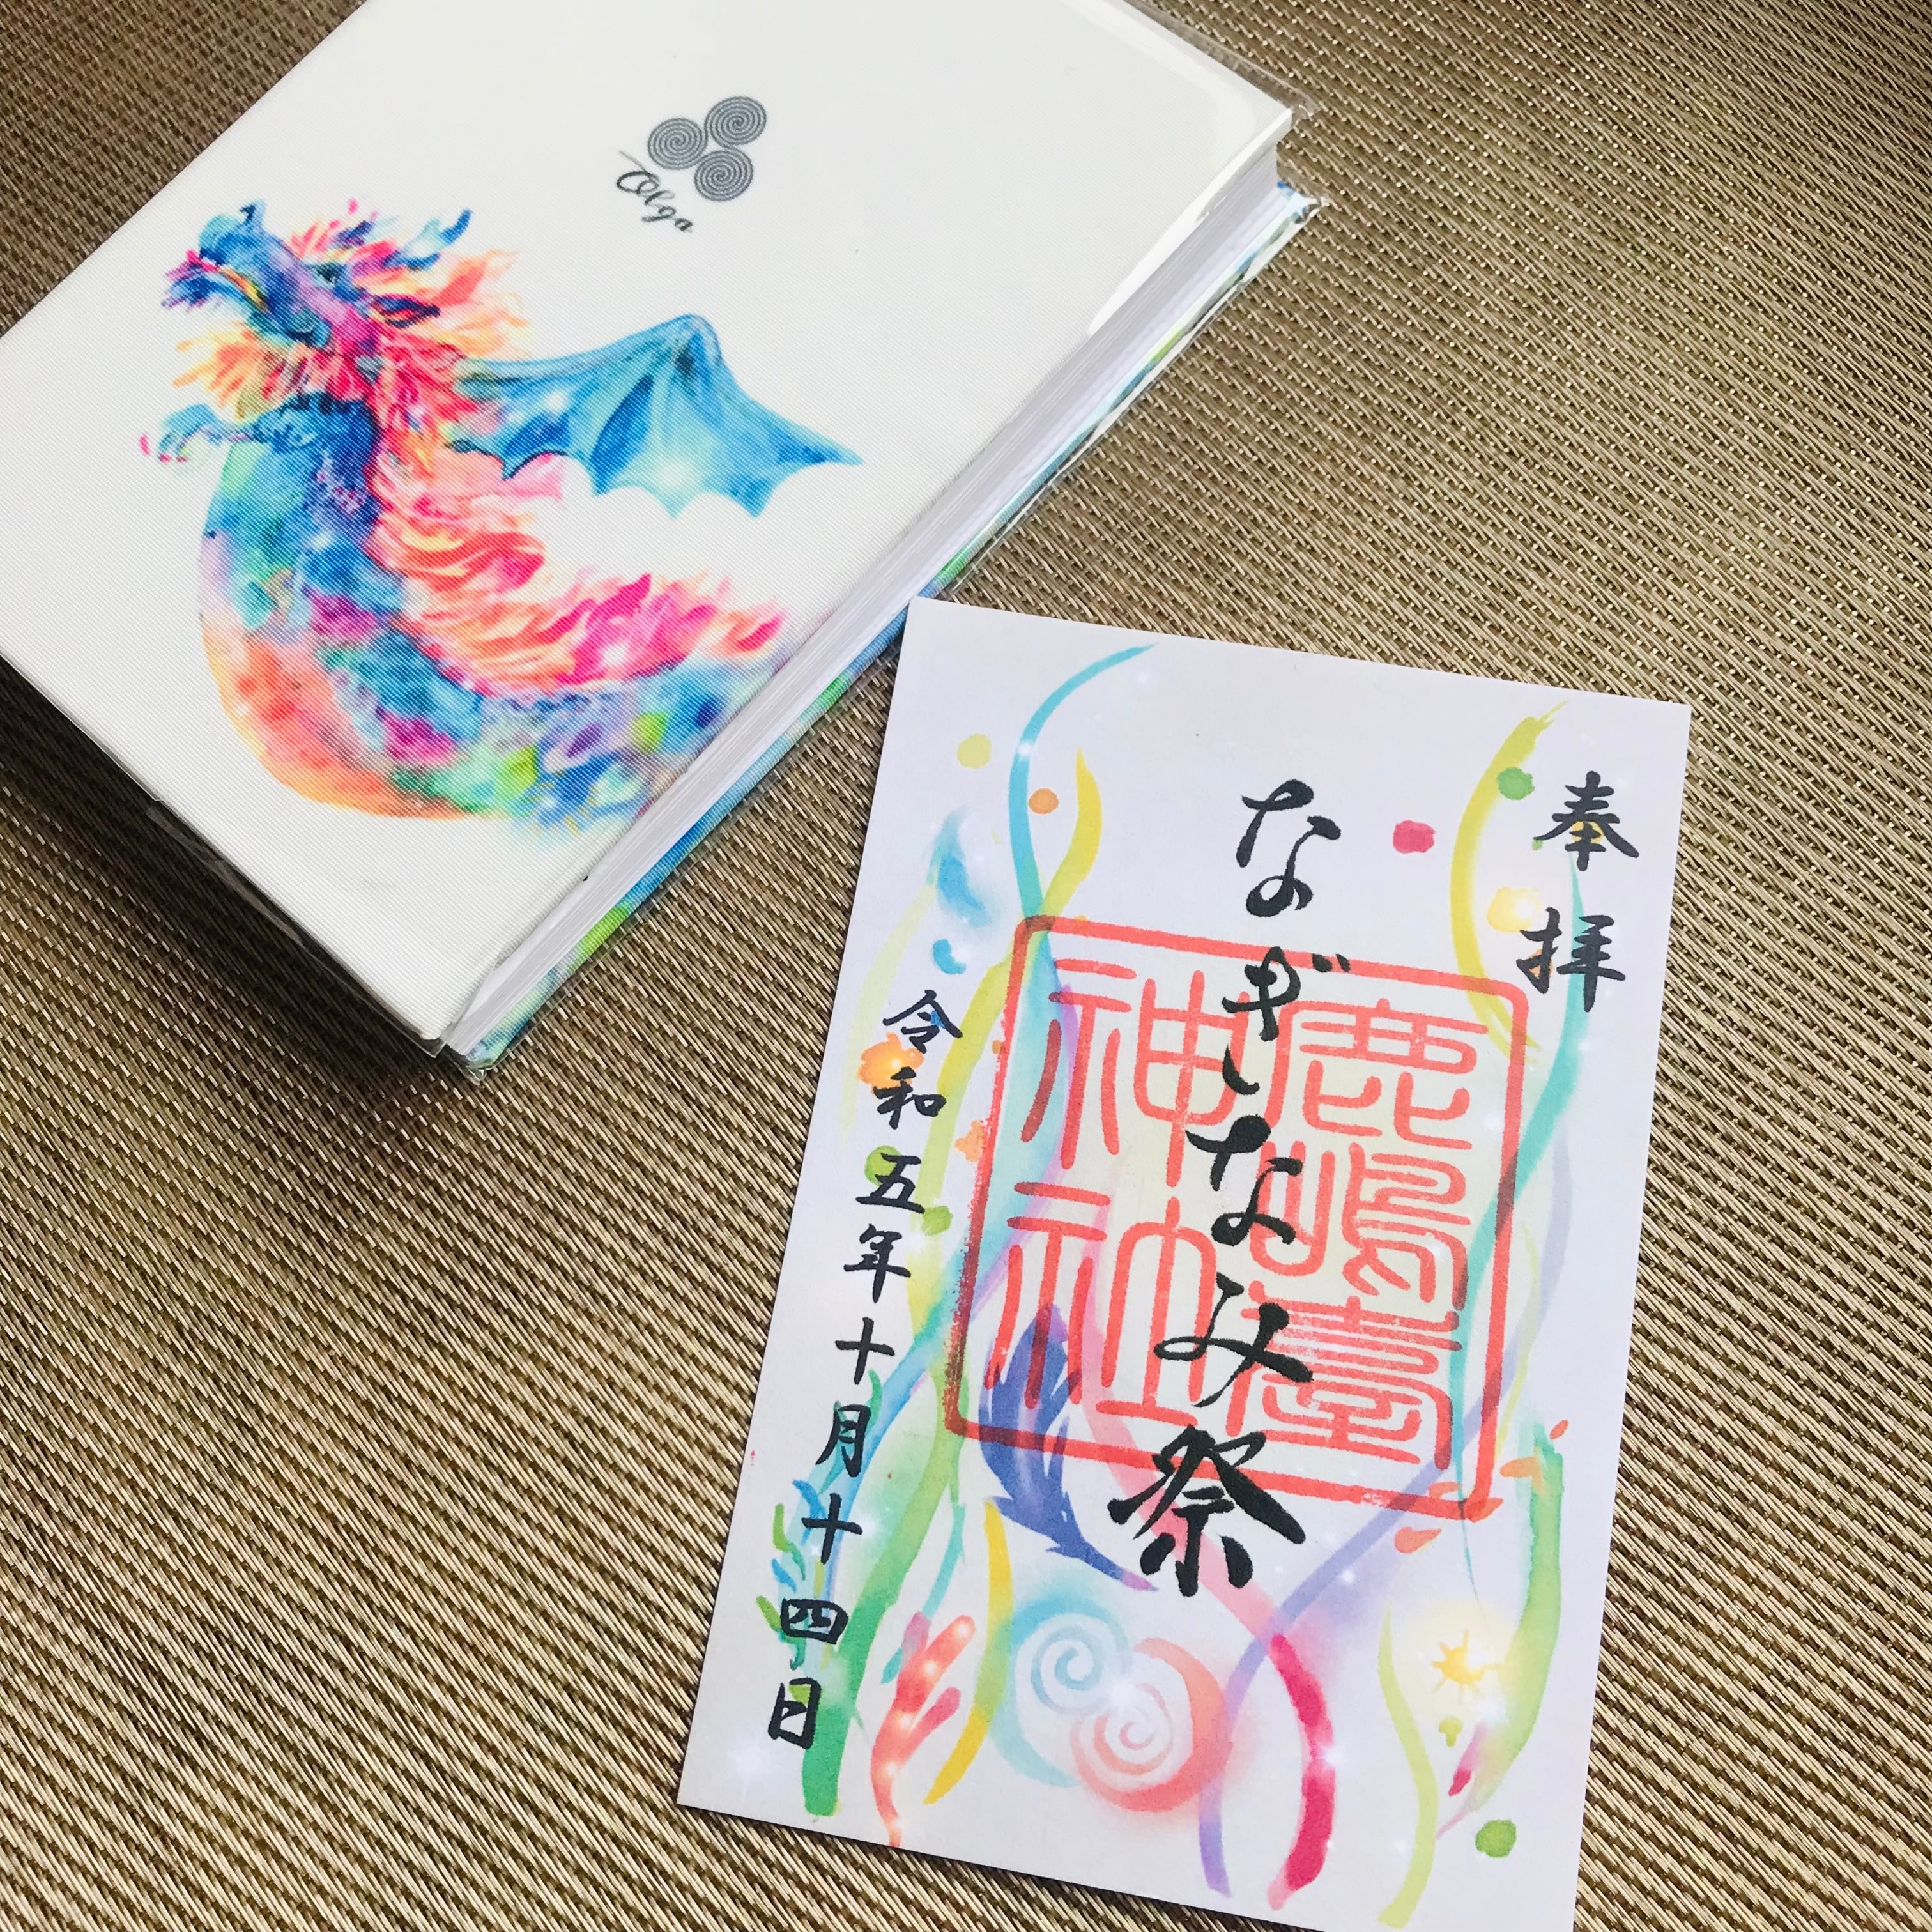 Olga
奉拝
なぎなみ祭
鹿嶋臺
神社
令和五年十月十四日